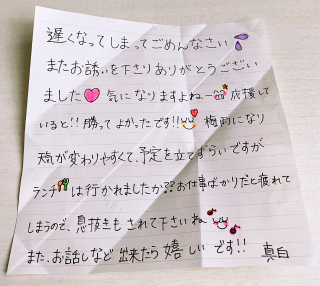 遅くなってしまってごめんなさい
またお誘いを下さりありがとうござい
ました 気になりますよね一 応援して
いると!! 勝ってよかったです!! 梅雨になり
天気が変わりやすくて、予定を立てずらいですが
ランチは行かれましたか?? お仕事ばかりだと疲れて
しまうので、息抜きもされて下さいね
また、お話しなど出来たら嬉しいです!! 真白